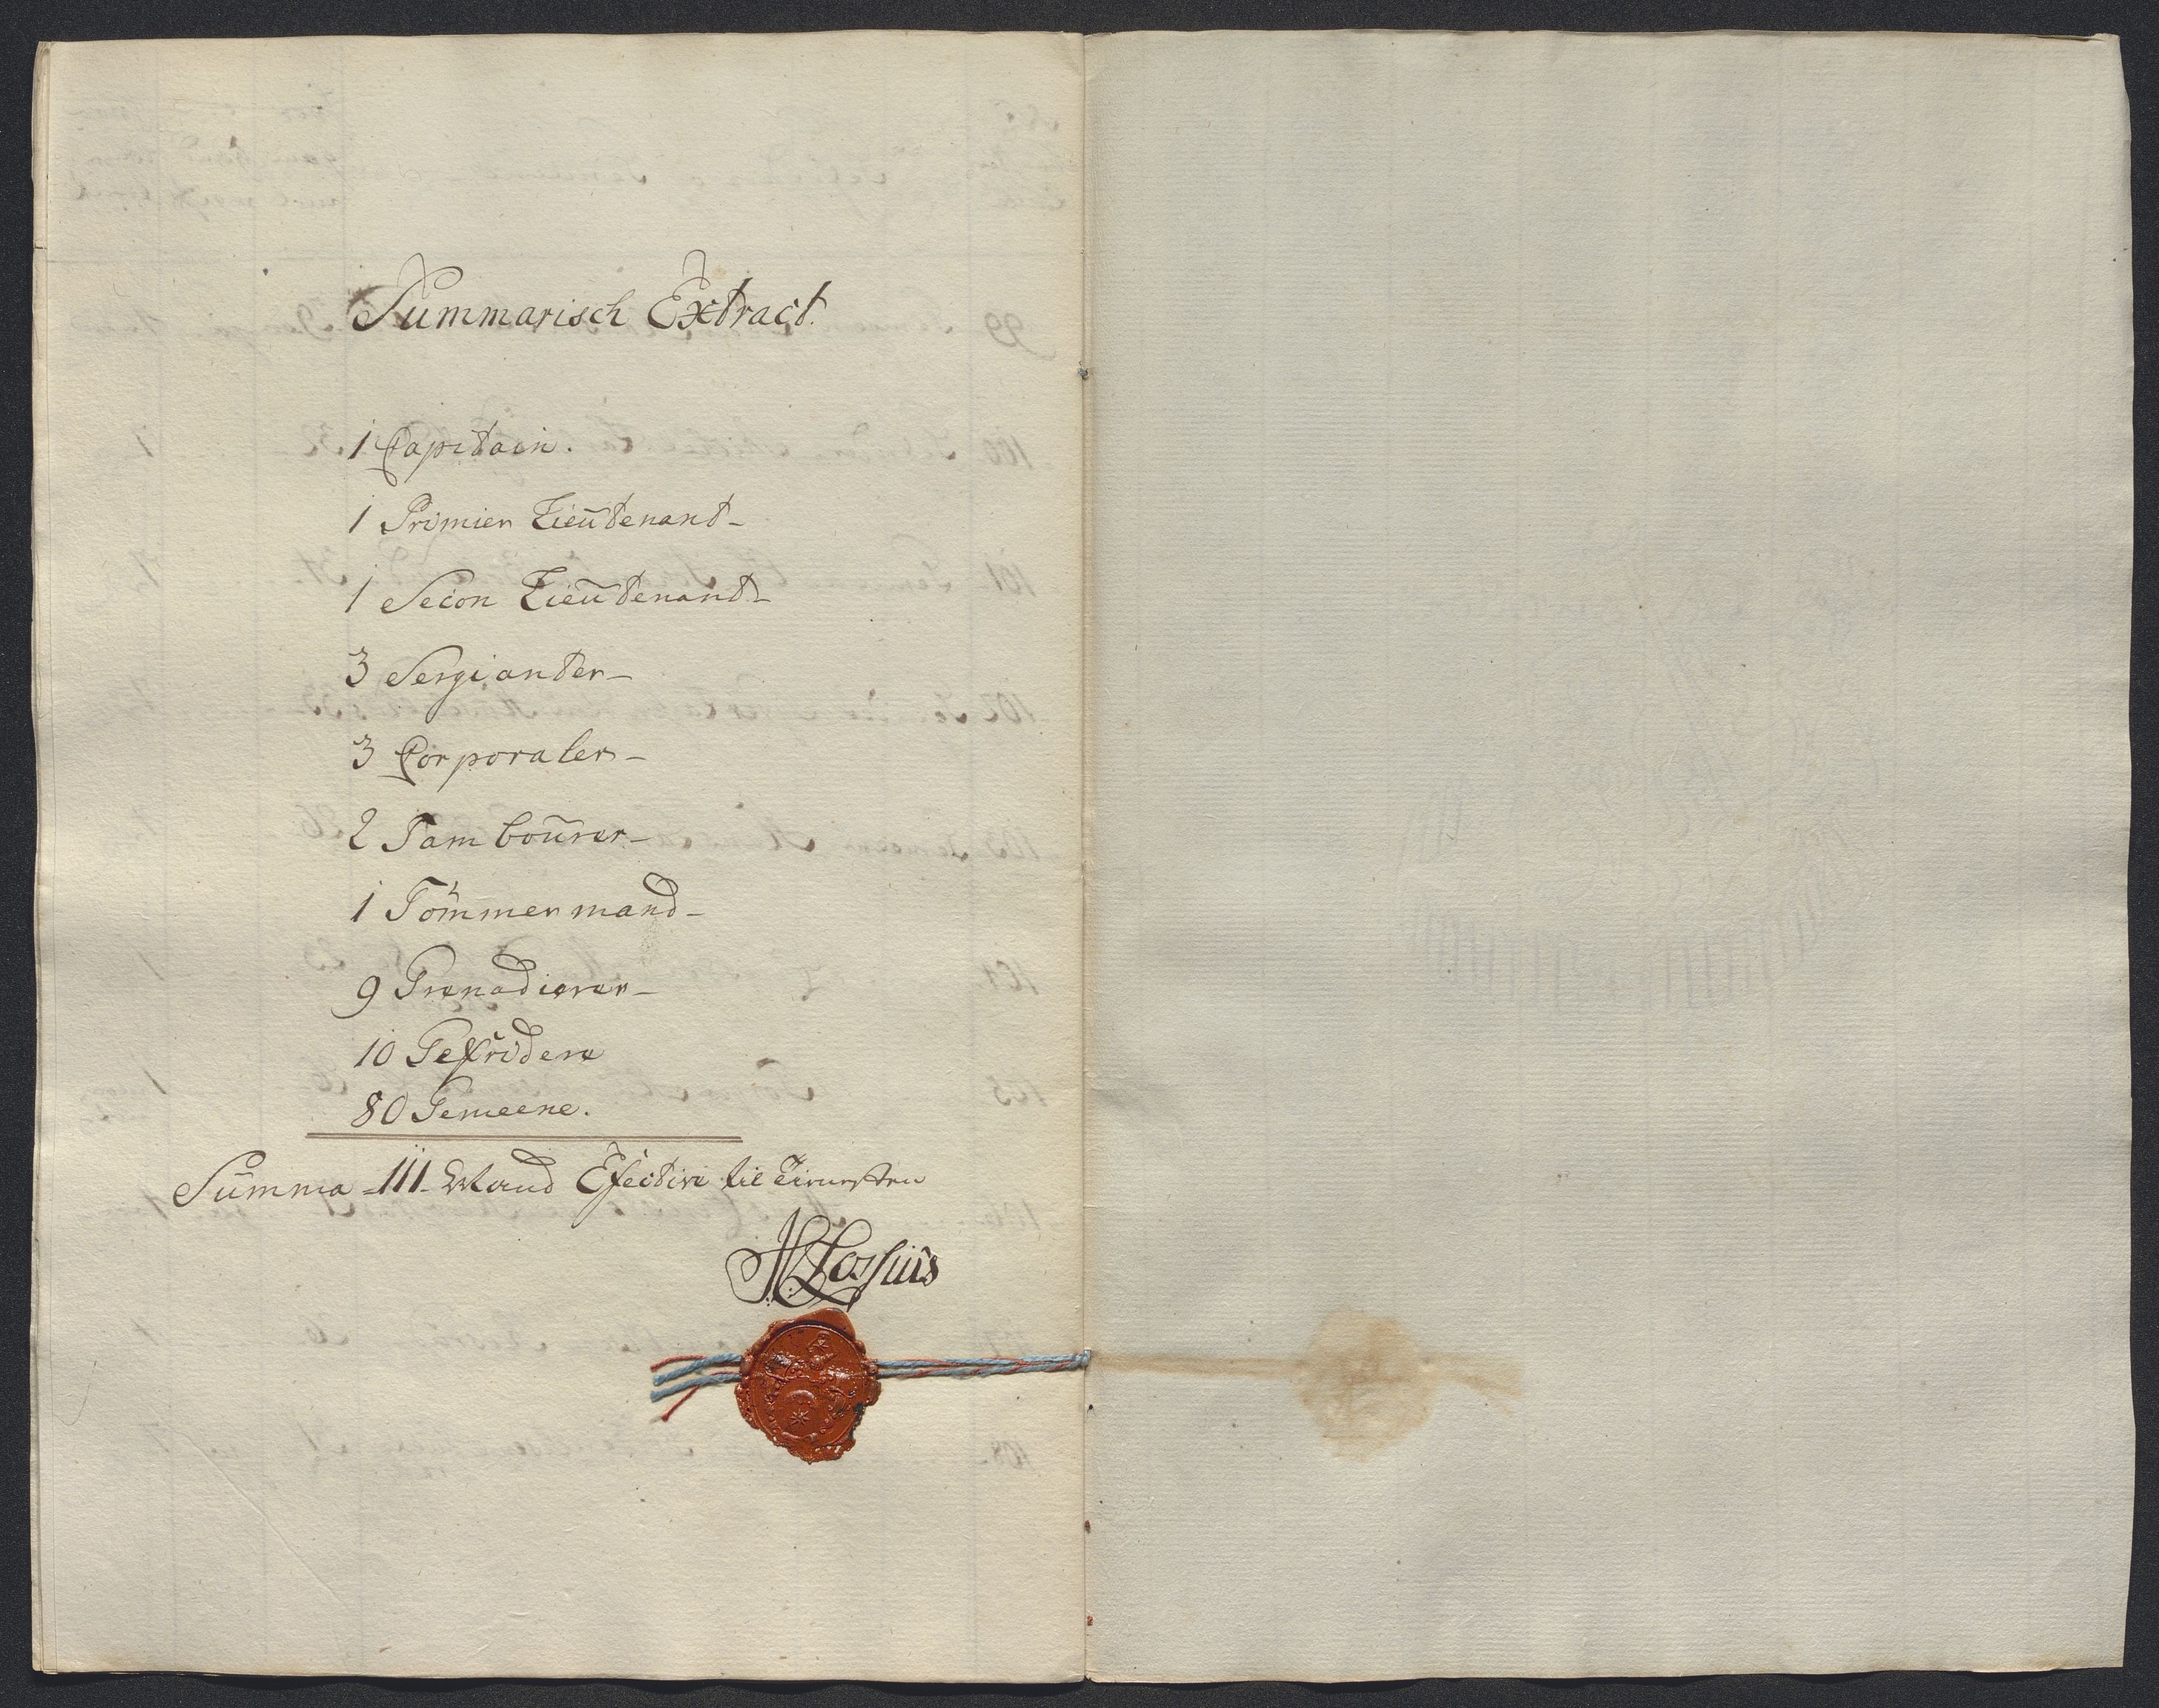 Summarisch Extract.
1 Capitain.
1 Primier Lieutenant-
1 Secon Lieutenant-
3 Sergianter-
3 Corporaler-
2 Tambourer-
1 Tömmermand-
9 Grenadierer-
10 Gefridere
80 Gemeene.
Summa -111- Mand Efective til Tienesten
Lossius